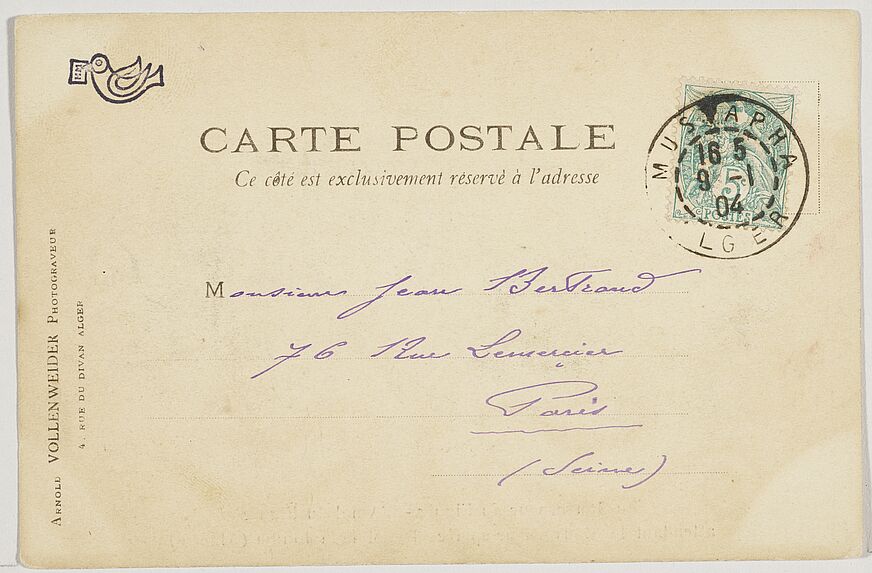 CARTE POSTALE
Ce côté est exclusivement réservé à l'adresse
MUSTAPHA
16 5
9 -1
04
ALGER
5
POSTES
Monsieur Jean Bertrand
76 Rue Lemercier
Paris
(Seine)
ARNOLD VOLLENWEIDER PHOTOGRAVEUR
4, RUE DU DIVAN ALGER